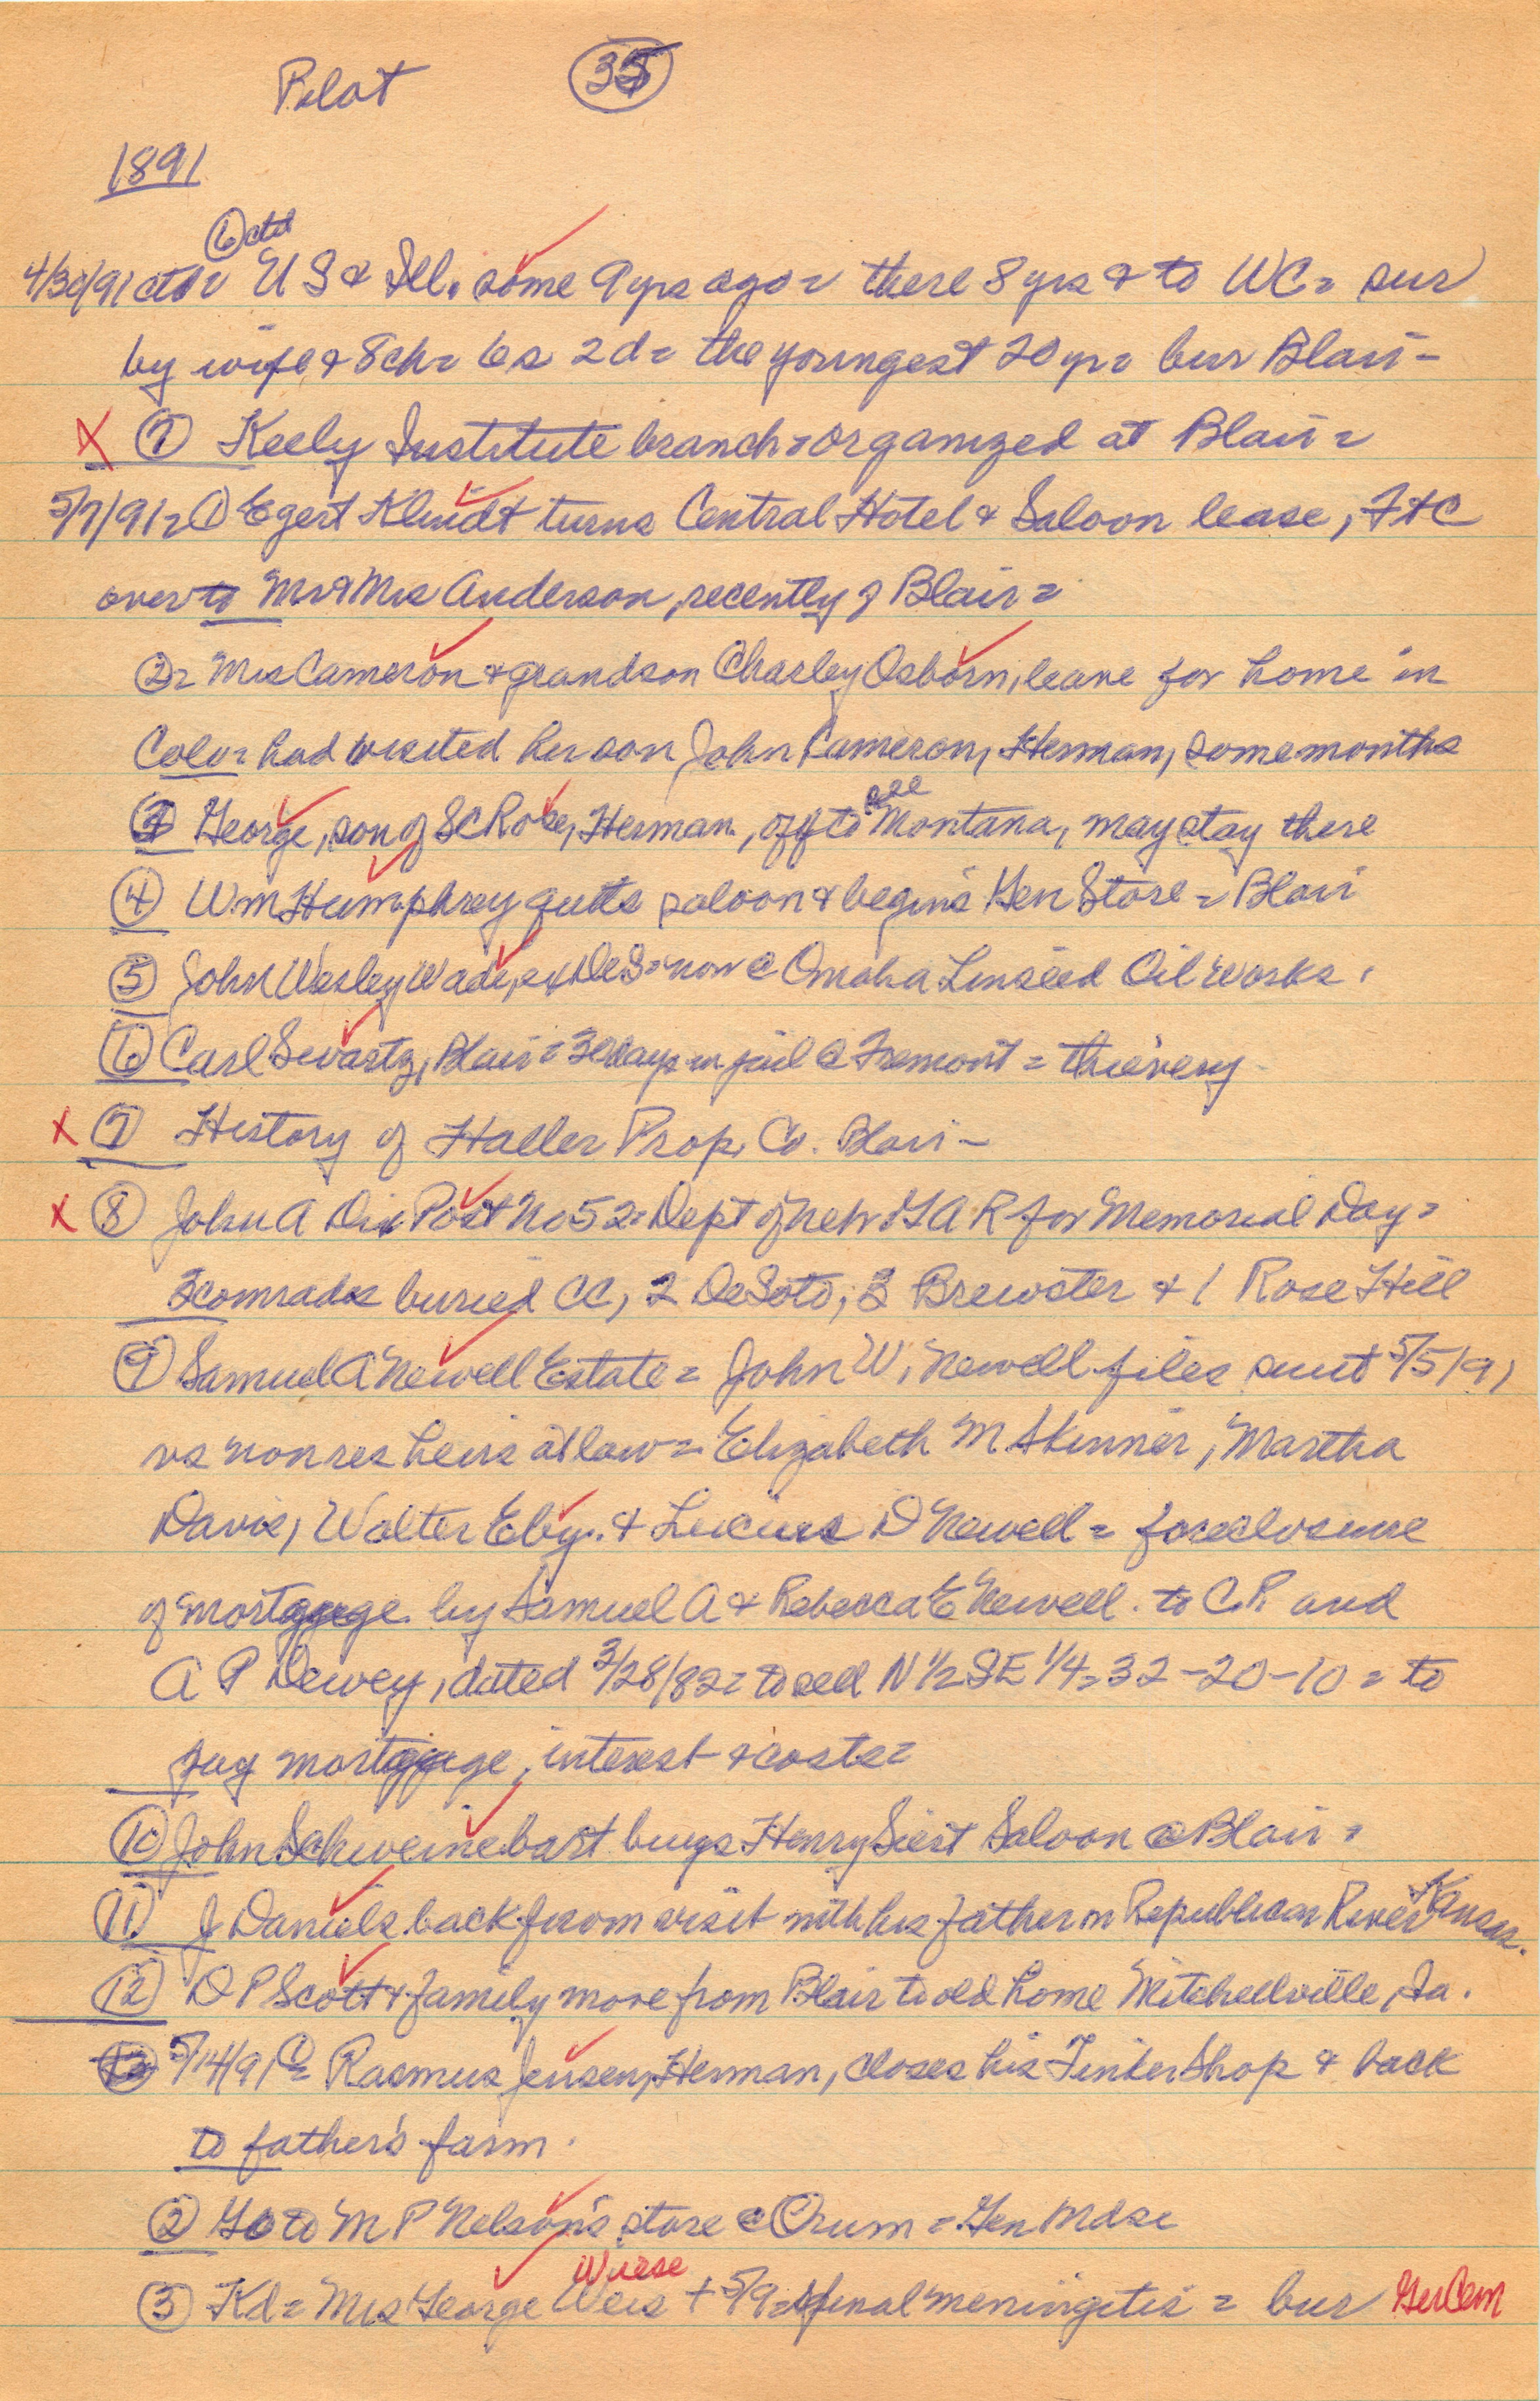 Pilot 35
1891
6 ctd
4/30/91 ctd= U S & Ill. some 9 yrs ago= there 8 yrs & to WC= sur
by wife & 8 ch= 6 s 2 d= the youngest 20 yr= bur Blair-
X 7 Keely Institute branch=organized at Blair=
5/7/91= 1 Egert Klindt turns Central Hotel & Saloon lease, FtC
over to Mr & Mrs Anderson, recently of Blair=
2= Mrs Cameron & grandson Charley Osborn, leave for home in
Colo= had visited her son John Cameron, Herman, some months
see
3 George, son of SC Rose, Herman, off to Montana, may stay there
4 Wm Humphrey quits saloon & begins Gen Store = Blair
5 John Wesley Wade, ex DeS= now @ Omaha Linseed Oil Works.
6 Carl Swartz, Blair= 30 days in jail @ Fremont = thievery
X 7 History of Haller Prop. Co. Blair-
X 8 John A Dix Post No 52= Dept of Neb GAR for Memorial Day=
3 comrades buried CC, 2 DeSoto, 3 Brewster & 1 Rose Hill
9 Samuel A Newell Estate = John W. Newell files suit 5/5/91
vs non res heirs at law= Elizabeth M Skinner, Martha
Davis, Walter Eby. & Lucius D Newell = foreclosure
of mortgage by Samuel A & Rebecca E Newell. to C.R and
A P Dewey, dated 3/28/82= to sell N 1/2 SE 1/4= 32-20-10 = to
pay mortgage, interest & costs=
10 John Schweinebart buys Henry Siest Saloon @ Blair=
11 J Daniels back from visit with his father on Republican River Kansas.
12 D P Scott & family move from Blair to old home Mitchellville, Ia.
13 5/14/91 1= Rasmus Jensen, Herman, closes his Tinker Shop & back
to father's farm.
2 Go to M P Nelson's store @ Orum = Gen Mdse
Wurse
3 Kd= Mrs George Weis + 5/9= spinal meningitis = bur Ger Cem